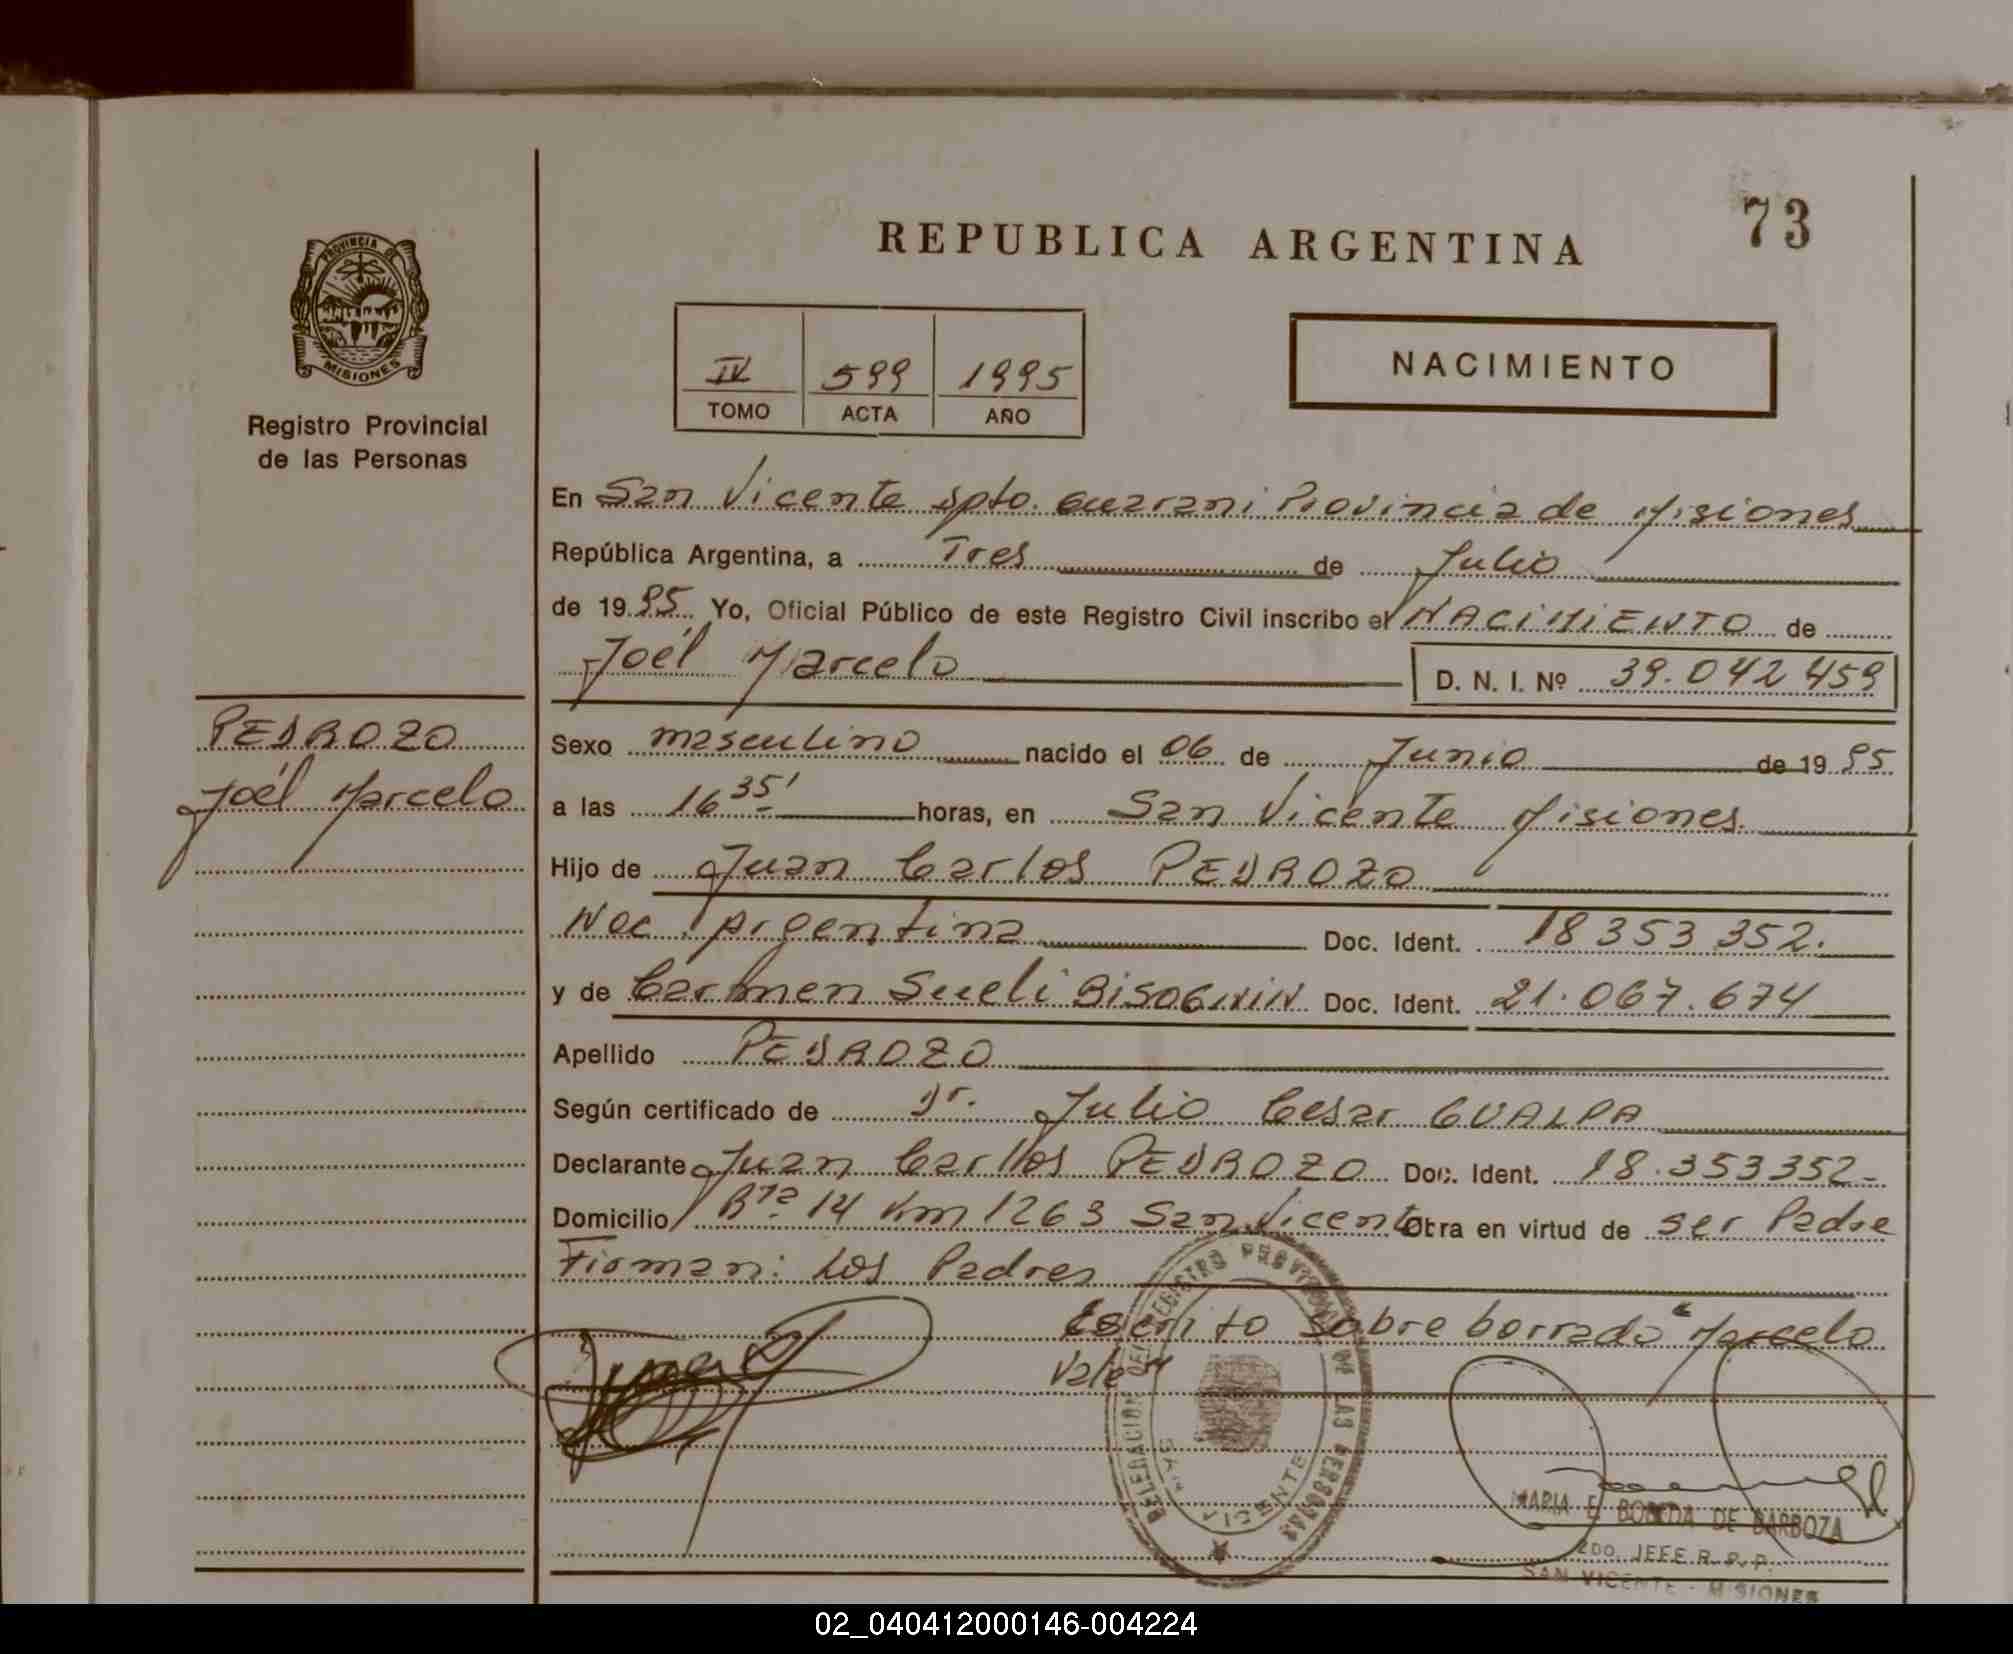 73
REPUBLICA ARGENTINA
PROVINCIA DE
MISIONES
Registro Provincial
de las Personas
IV 599 1995
TOMO ACTA AÑO
NACIMIENTO
En San Vicente Dpto. Guarani Provincia de Misiones
República Argentina, a Tres de Julio
de 1995 Yo, Oficial Público de este Registro Civil inscribo el NACIMIENTO de
Joél Marcelo D. N. I. Nº 39.042 459
PEDROZO
Joél Marcelo
Sexo masculino nacido el 06 de Junio de 1995
a las 16 35' horas, en San Vicente Misiones.
Hijo de Juan Carlos PEDROZO
Nac. Argentina Doc. Ident. 18 353 352.
y de Carmen Sueli BISOGNIN Doc. Ident. 21.067.674
Apellido PEDROZO
Según certificado de Dr. Julio Cesar GUALPA
Declarante Juan Carlos PEDROZO Doc. Ident. 18.353352-
Domicilio Rta 14 Km 1263 San Vicente Obra en virtud de ser Padre
Firman: Los Padres
Escrito sobre borrado "Marcelo
Vale"
DELEGACION DEL REGISTRO PROVINCIAL DE LAS PERSONAS
SAN VICENTE
MARIA E. BOBEDA DE BARBOZA
2DO. JEFE R. P. P.
SAN VICENTE - MISIONES
02_040412000146-004224